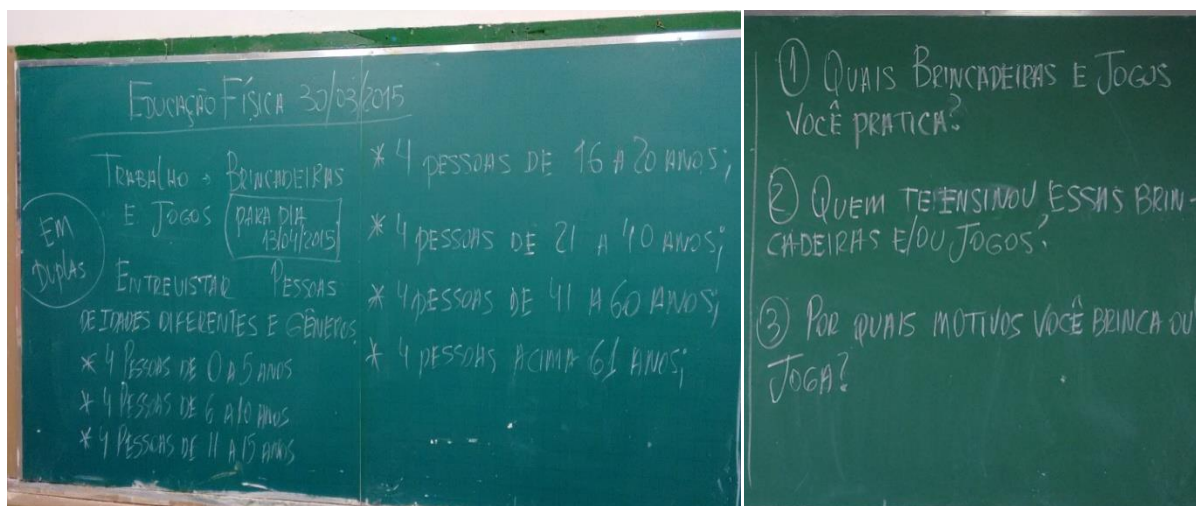 EDUCAÇÃO FÍSICA 30/03/2015
TRABALHO → BRINCADEIRAS
E JOGOS
PARA DIA
13/04/2015
EM
DUPLAS
ENTREVISTAR PESSOAS
DE IDADES DIFERENTES E GÊNEROS.
* 4 PESSOAS DE 0 A 5 ANOS
* 4 PESSOAS DE 6 A 10 ANOS
* 4 PESSOAS DE 11 A 15 ANOS
* 4 PESSOAS DE 16 A 20 ANOS;
* 4 PESSOAS DE 21 A 40 ANOS;
* 4 PESSOAS DE 41 A 60 ANOS;
* 4 PESSOAS ACIMA 61 ANOS;
① QUAIS BRINCADEIRAS E JOGOS
VOCÊ PRATICA?
② QUEM TE ENSINOU ESSAS BRIN-
CADEIRAS E/OU JOGOS?
③ POR QUAIS MOTIVOS VOCÊ BRINCA OU
JOGA?